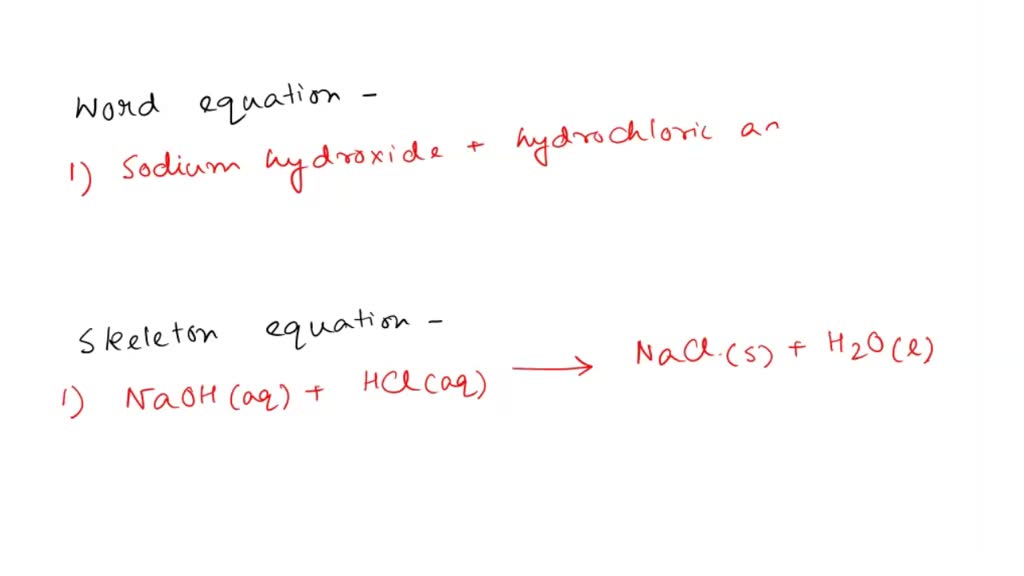 Word equation -
1) Sodium hydroxide + hydrochloric
Skeleton equation -
1) NaOH (aq) + HCl (aq) ⟶ NaCl. (s) + H₂O (l)